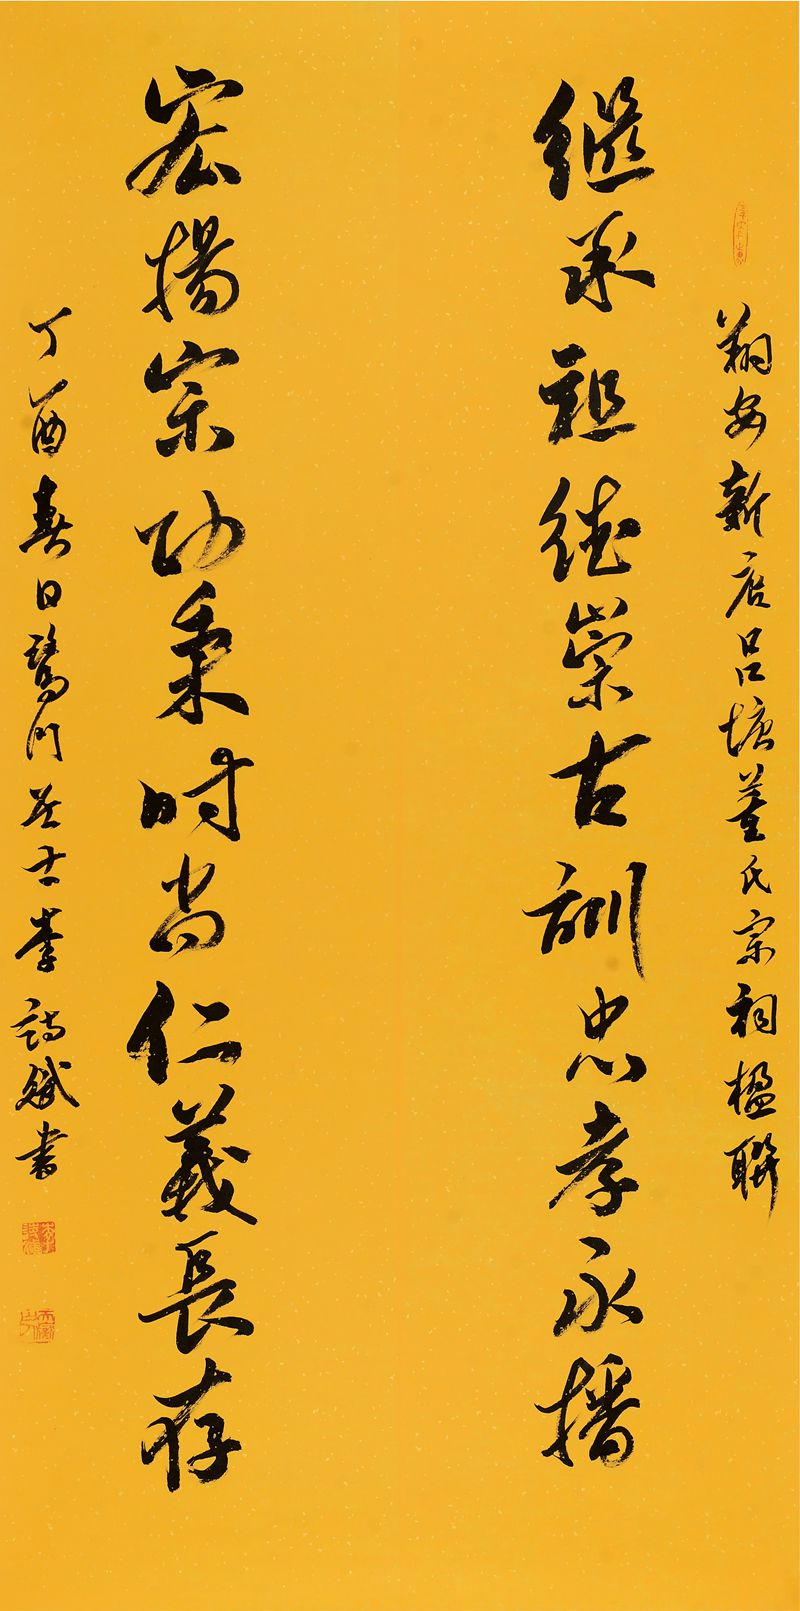 翔安新店吕塘董氏宗祠楹聯
继承祖德崇古訓忠孝永播
宏揚宗功秉时尚仁義長存
丁酉春日鹭門居士李詩斌書